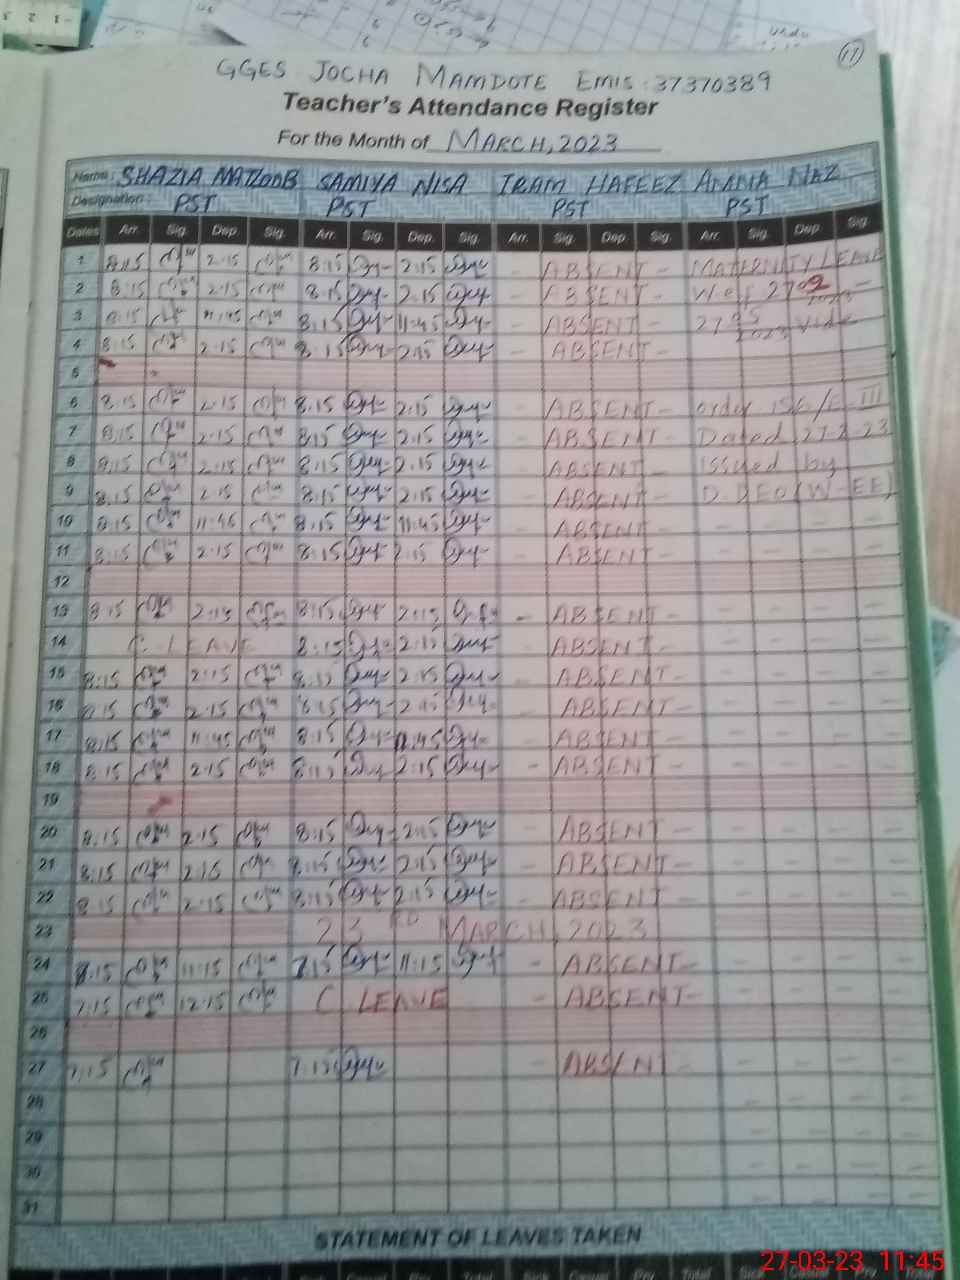 17
GGES JOCHA MAMDOTE EMIS: 37370389
Teacher's Attendance Register
For the Month of MARCH, 2023
Name: SHAZIA MATLOOB SAMIYA NISA IRAM HAFEEZ AMNA NAZ
Designation: PST PST PST PST
Dates Arr. Sig. Dep. Sig. Arr. Sig. Dep. Sig. Arr. Sig. Dep. Sig. Arr. Sig. Dep. Sig.
1 8:15 2:15 8:15 2:15 - ABSENT - MATERNITY LEAVE
2 8:15 2:15 8:15 2:15 - ABSENT - w.e.f 27-02-2023
3 8:15 11:45 8:15 11:45 - ABSENT - 27 2023 vide
4 8:15 2:15 8:15 2:15 - ABSENT -
5
6 8:15 2:15 8:15 2:15 - ABSENT - order 156/E-III
7 8:15 2:15 8:15 2:15 - ABSENT - Dated 27-2-23
8 8:15 2:15 8:15 2:15 - ABSENT - issued by
9 8:15 2:15 8:15 2:15 - ABSENT - D.DEO(W-EE)
10 8:15 11:45 8:15 11:45 - ABSENT -
11 8:15 2:15 8:15 2:15 - ABSENT -
12
13 8:15 2:15 8:15 2:15 - ABSENT -
14 C. LEAVE 8:15 2:15 - ABSENT -
15 8:15 2:15 8:15 2:15 - ABSENT -
16 8:15 2:15 8:15 2:15 - ABSENT -
17 8:15 11:45 8:15 11:45 - ABSENT -
18 8:15 2:15 8:15 2:15 - ABSENT -
19
20 8:15 2:15 8:15 2:15 - ABSENT -
21 8:15 2:15 8:15 2:15 - ABSENT -
22 8:15 2:15 8:15 2:15 - ABSENT -
23 23RD MARCH, 2023
24 8:15 11:15 7:15 11:15 - ABSENT -
25 7:15 12:15 C. LEAVE - ABSENT -
26
27 7:15 7:15 - ABSENT -
28
29
30
31
STATEMENT OF LEAVES TAKEN
27-03-23 11:45